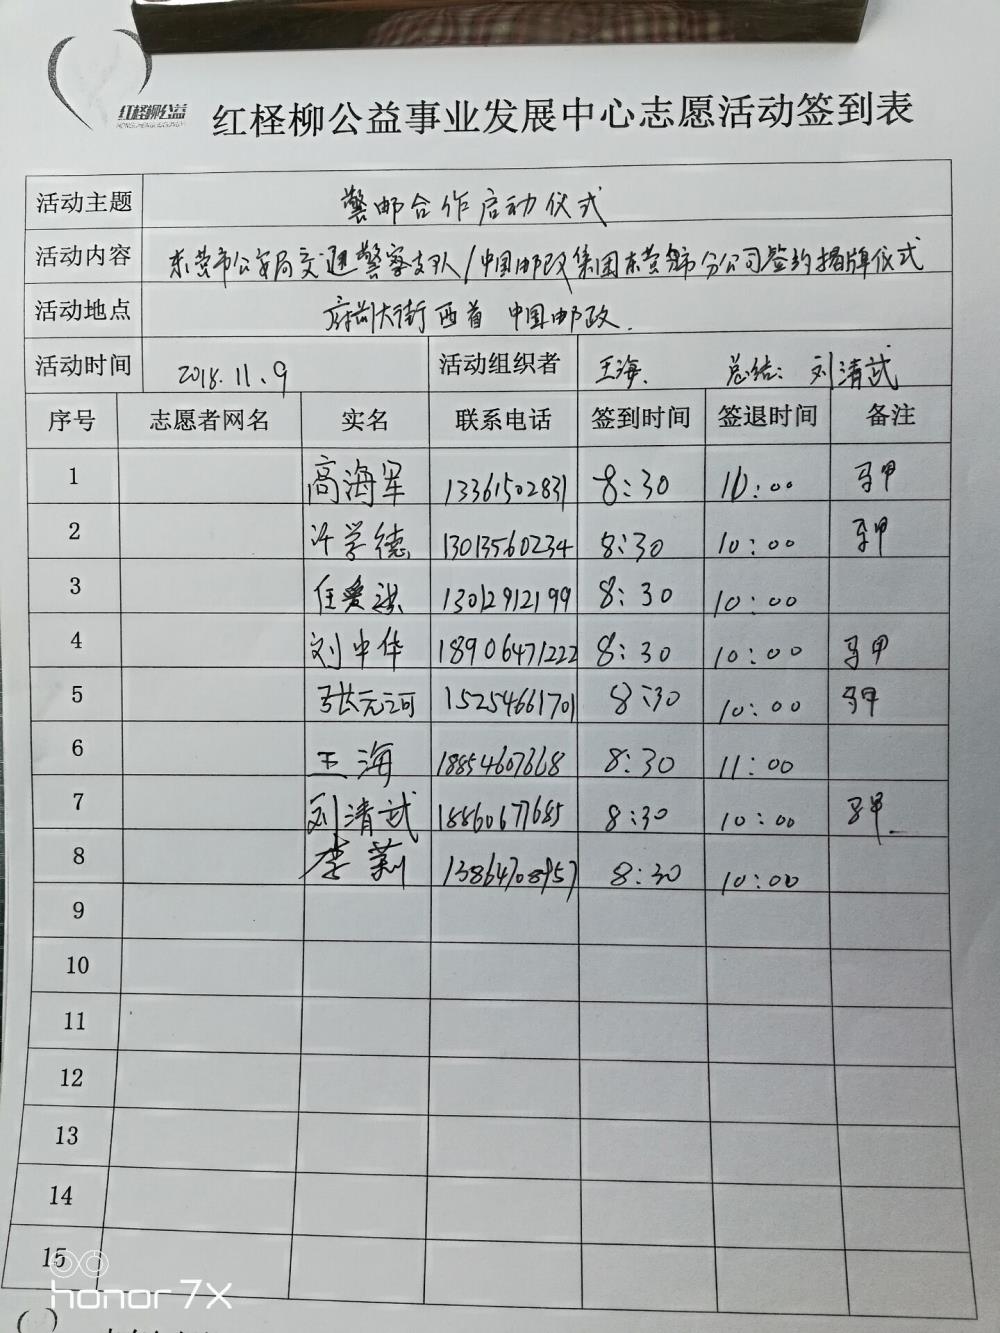 红柽柳公益
红柽柳公益事业发展中心志愿活动签到表
活动主题 警邮合作启动仪式
活动内容 东营市公安局交通警察支队/中国邮政集团东营市分公司签约揭牌仪式
活动地点 府前大街西首 中国邮政.
活动时间 2018.11、9 活动组织者 王海、 总结: 刘清武
序号 志愿者网名 实名 联系电话 签到时间 签退时间 备注
1 高海军 13361502831 8:30 10:00 马甲
2 许学德 13013560234 8:30 10:00 马甲
3 任爱 13012912199 8:30 10:00
4 刘中华 18906471222 8:30 10:00 马甲
5 张元河 15254661701 8:30 10:00 马甲
6 王海 18854607668 8:30 11:00
7 刘清武 18860677685 8:30 10:00 马甲
8 李莉 8:30 10:00
9
10
11
12
13
14
15
honor 7X